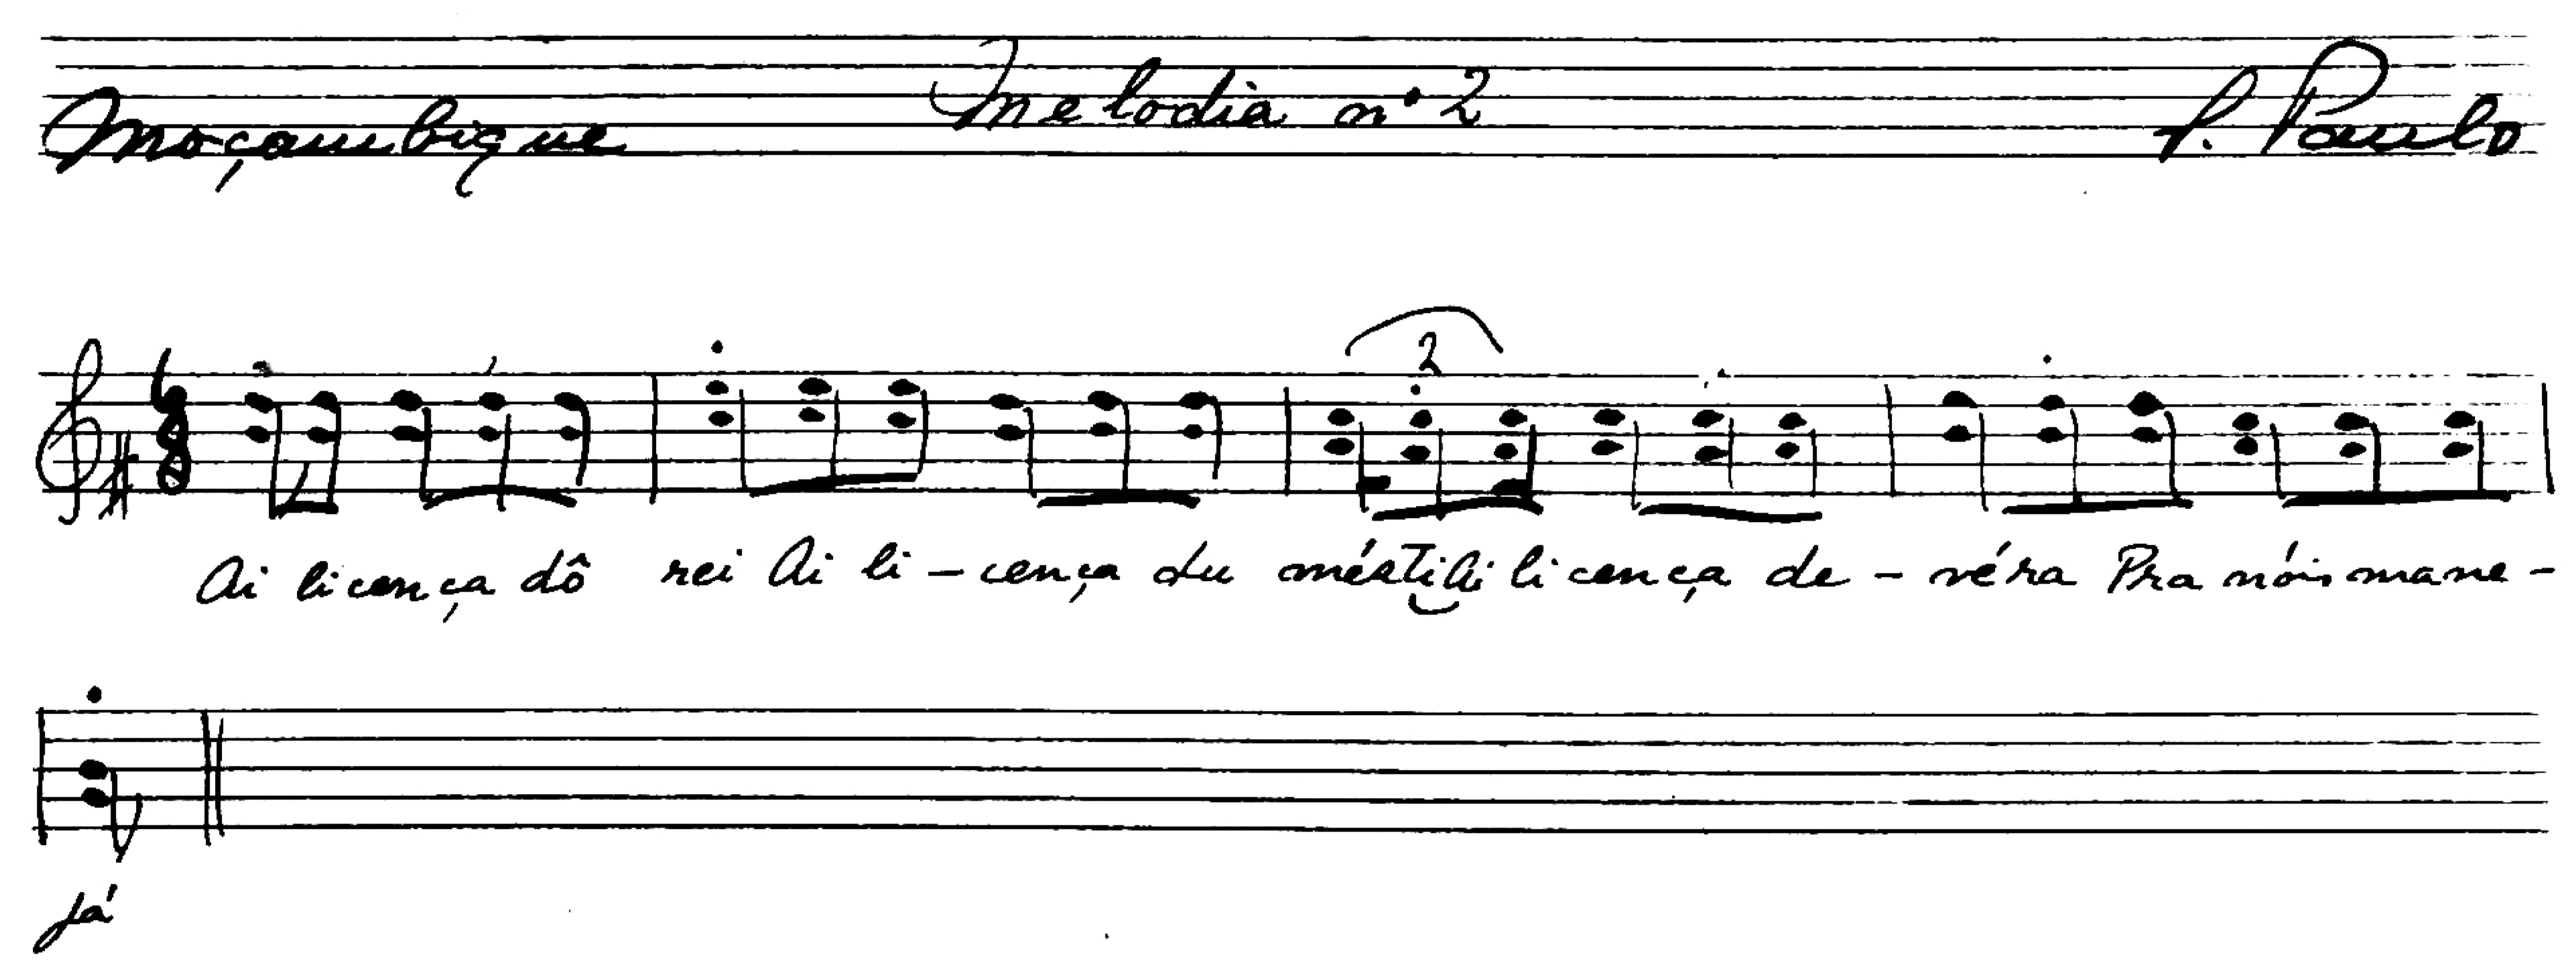 Moçambique Melodia nº 2 S. Paulo
2
6
8
Ai licença dô rei Ai li-cença du mésti Ai licença de-véra Pra nóis mane-
já